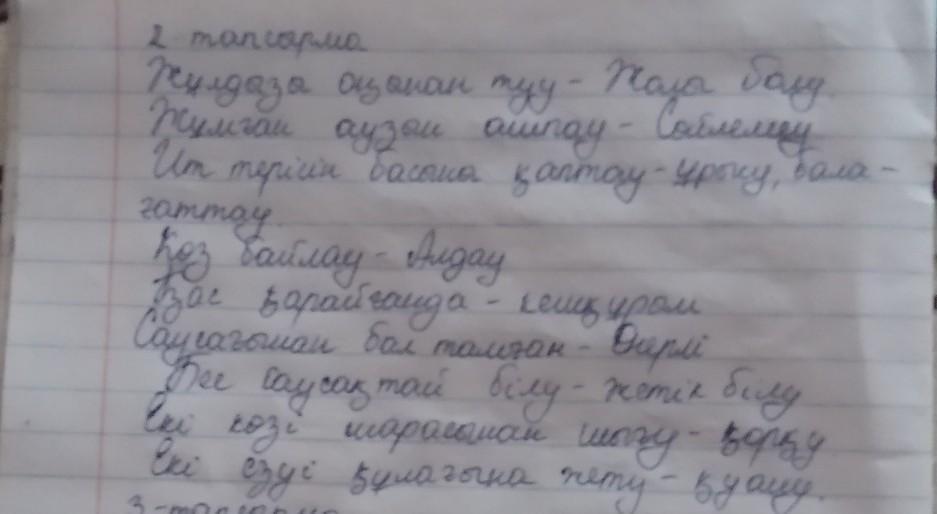 2 тапсырма
Жұлдызы оңынан туу - Жолы болу
Жұмған аузын ашпау - Сөйлемеу
Ит терісін басына қаптау - ұрысу, бала-
ғаттау.
Көз байлау - Алдау
Қас қарайғанда - кешқұрым
Саусағынан бал тамған - Өнерлі
Бес саусақтай білу - жетік білу
Екі көзі шарасынан шығу - қорқу
Екі езуі құлағына жету - қуану.
3-тапсырма